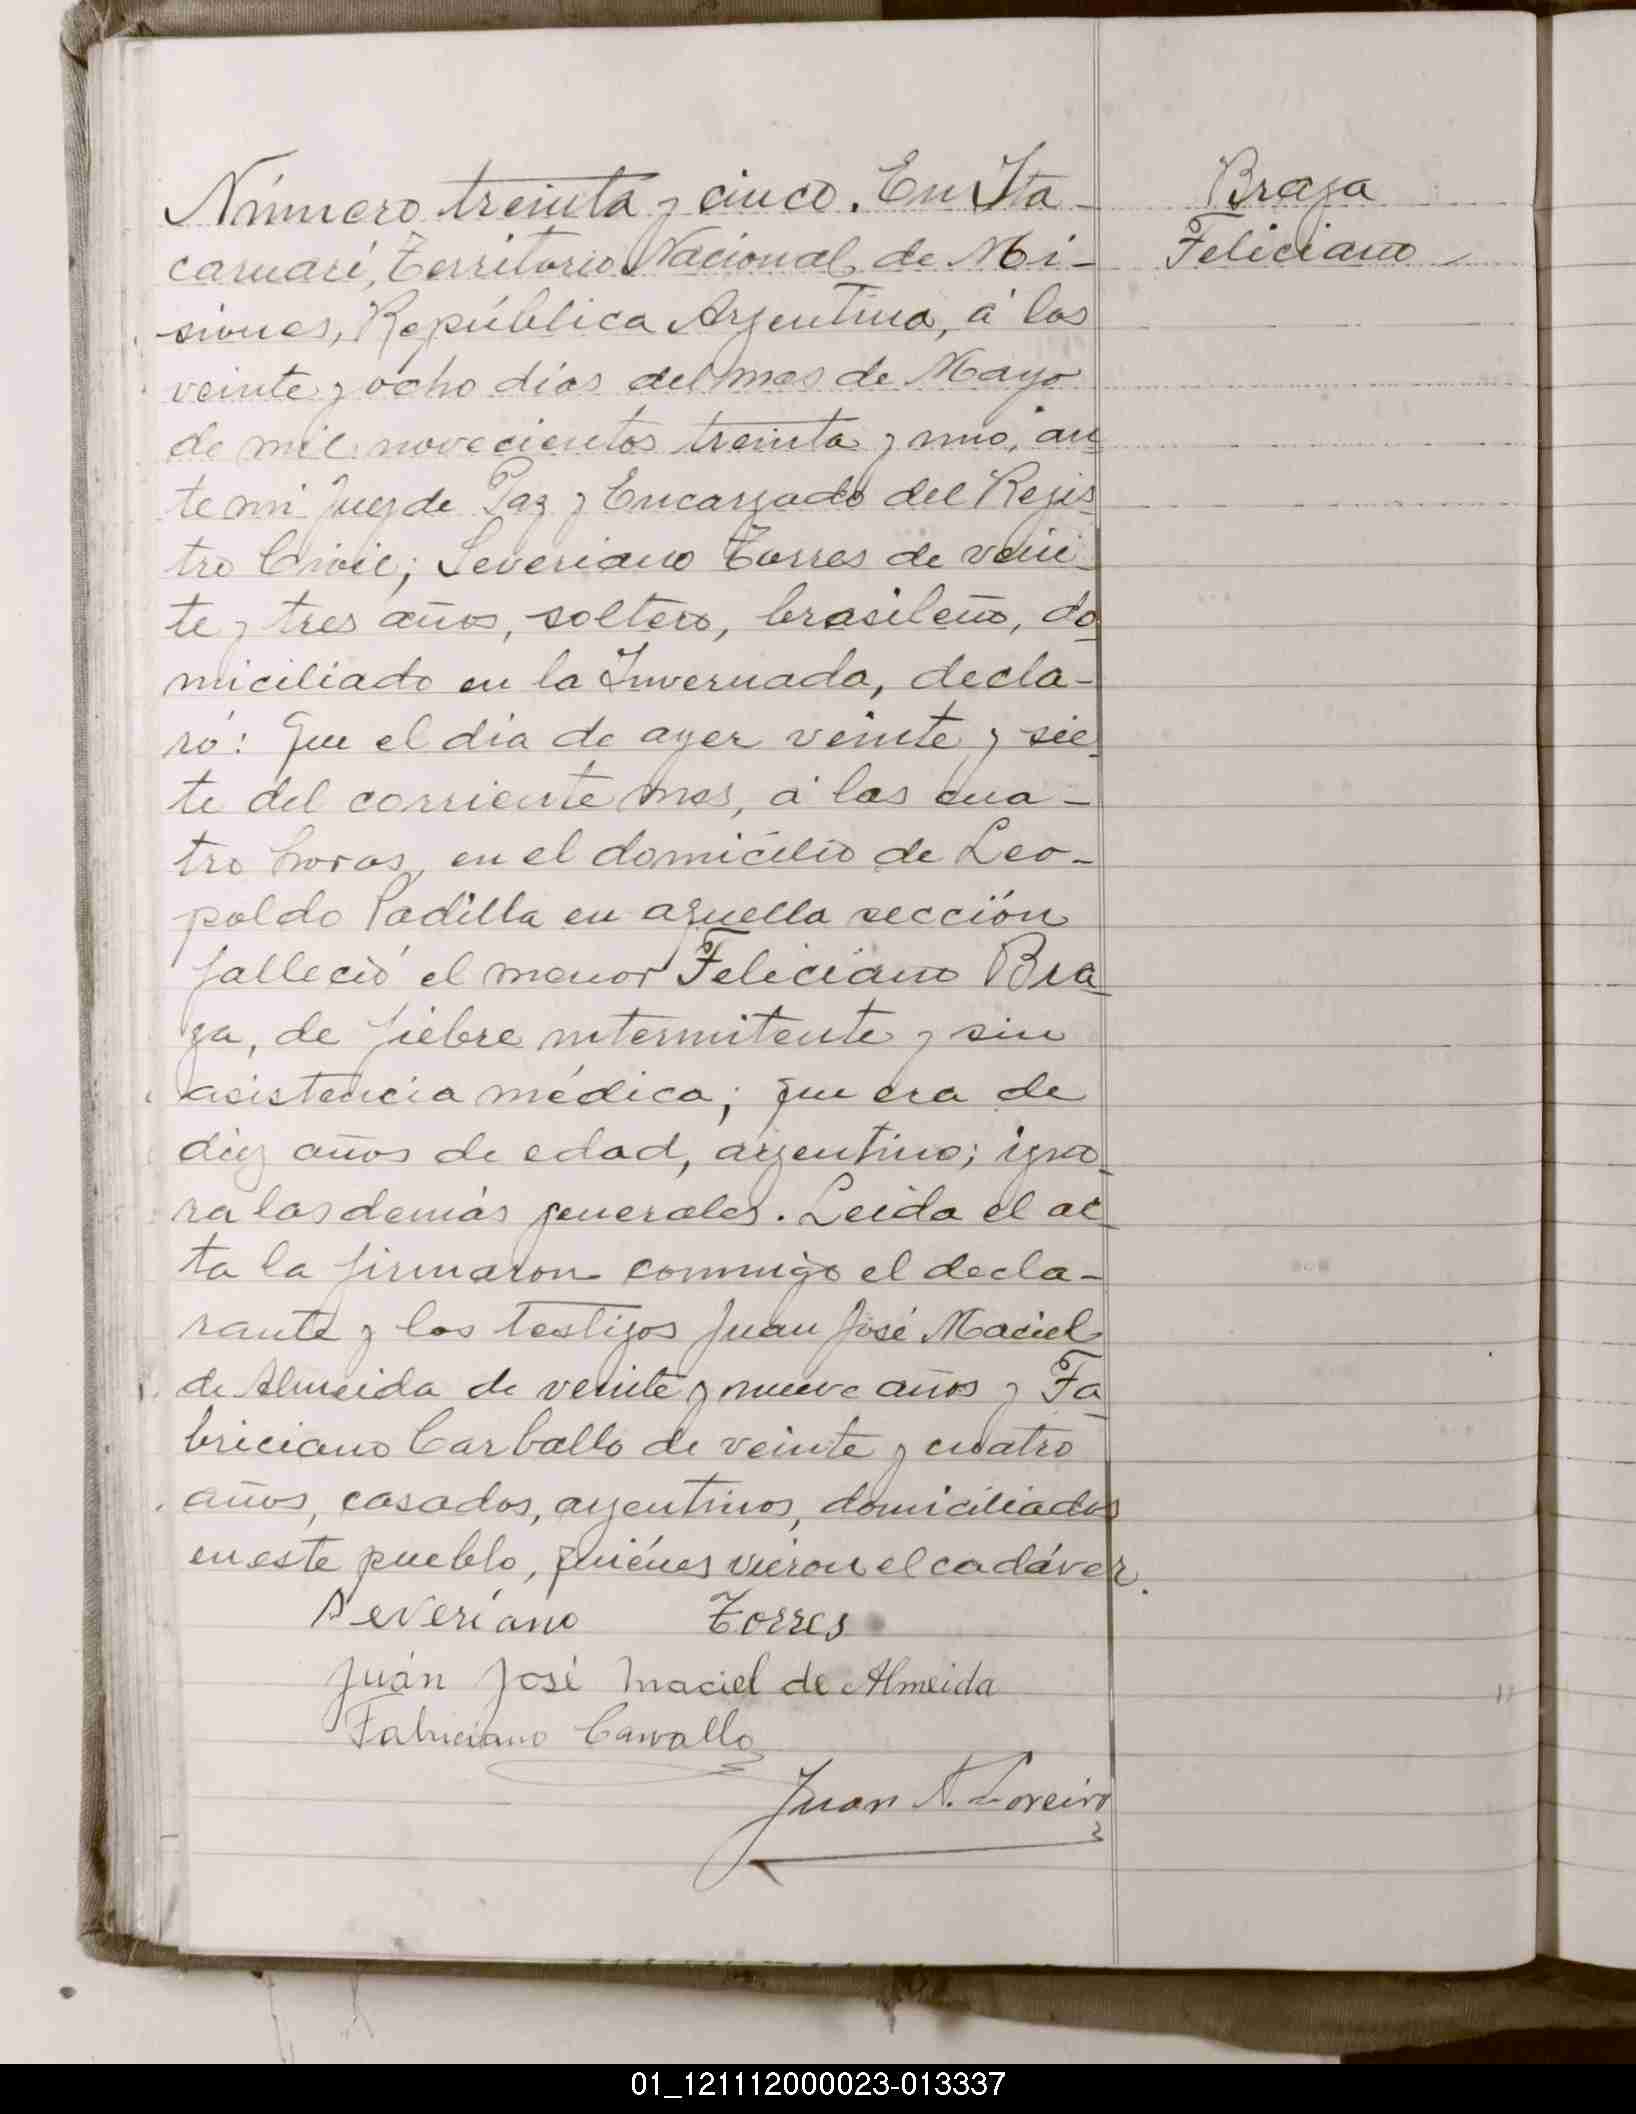 Número treinta y cinco. En Ita-
caruaré, Territorio Nacional de Mi-
siones, República Argentina, á los
veinte y ocho días del mes de Mayo
de mil novecientos treinta y uno, an-
te mi Juez de Paz y Encargado del Regis-
tro Civil; Severiano Torres de vein-
te y tres años, soltero, brasileño, do-
miciliado en la Invernada, decla-
ró: Que el día de ayer veinte y sie-
te del corriente mes, á las cua-
tro horas, en el domicilio de Leo-
poldo Padilla en aquella sección
falleció el menor Feliciano Bra-
ga, de fiebre intermitente y sin
asistencia médica; que era de
diez años de edad, argentino; igno-
ra las demás generales. Leida el ac-
ta la firmaron conmigo el decla-
rante y los testigos Juan José Maciel
de Almeida de veinte y nueve años y Fa-
briciano Carballo de veinte y cuatro
años, casados, argentinos, domiciliados
en este pueblo, quiénes vieron el cadáver.
Severiano Torres
Juán José Maciel de Almeida
Fabriciano Carvallo
Juan A. Loreiro
Braga
Feliciano
01_121112000023-013337